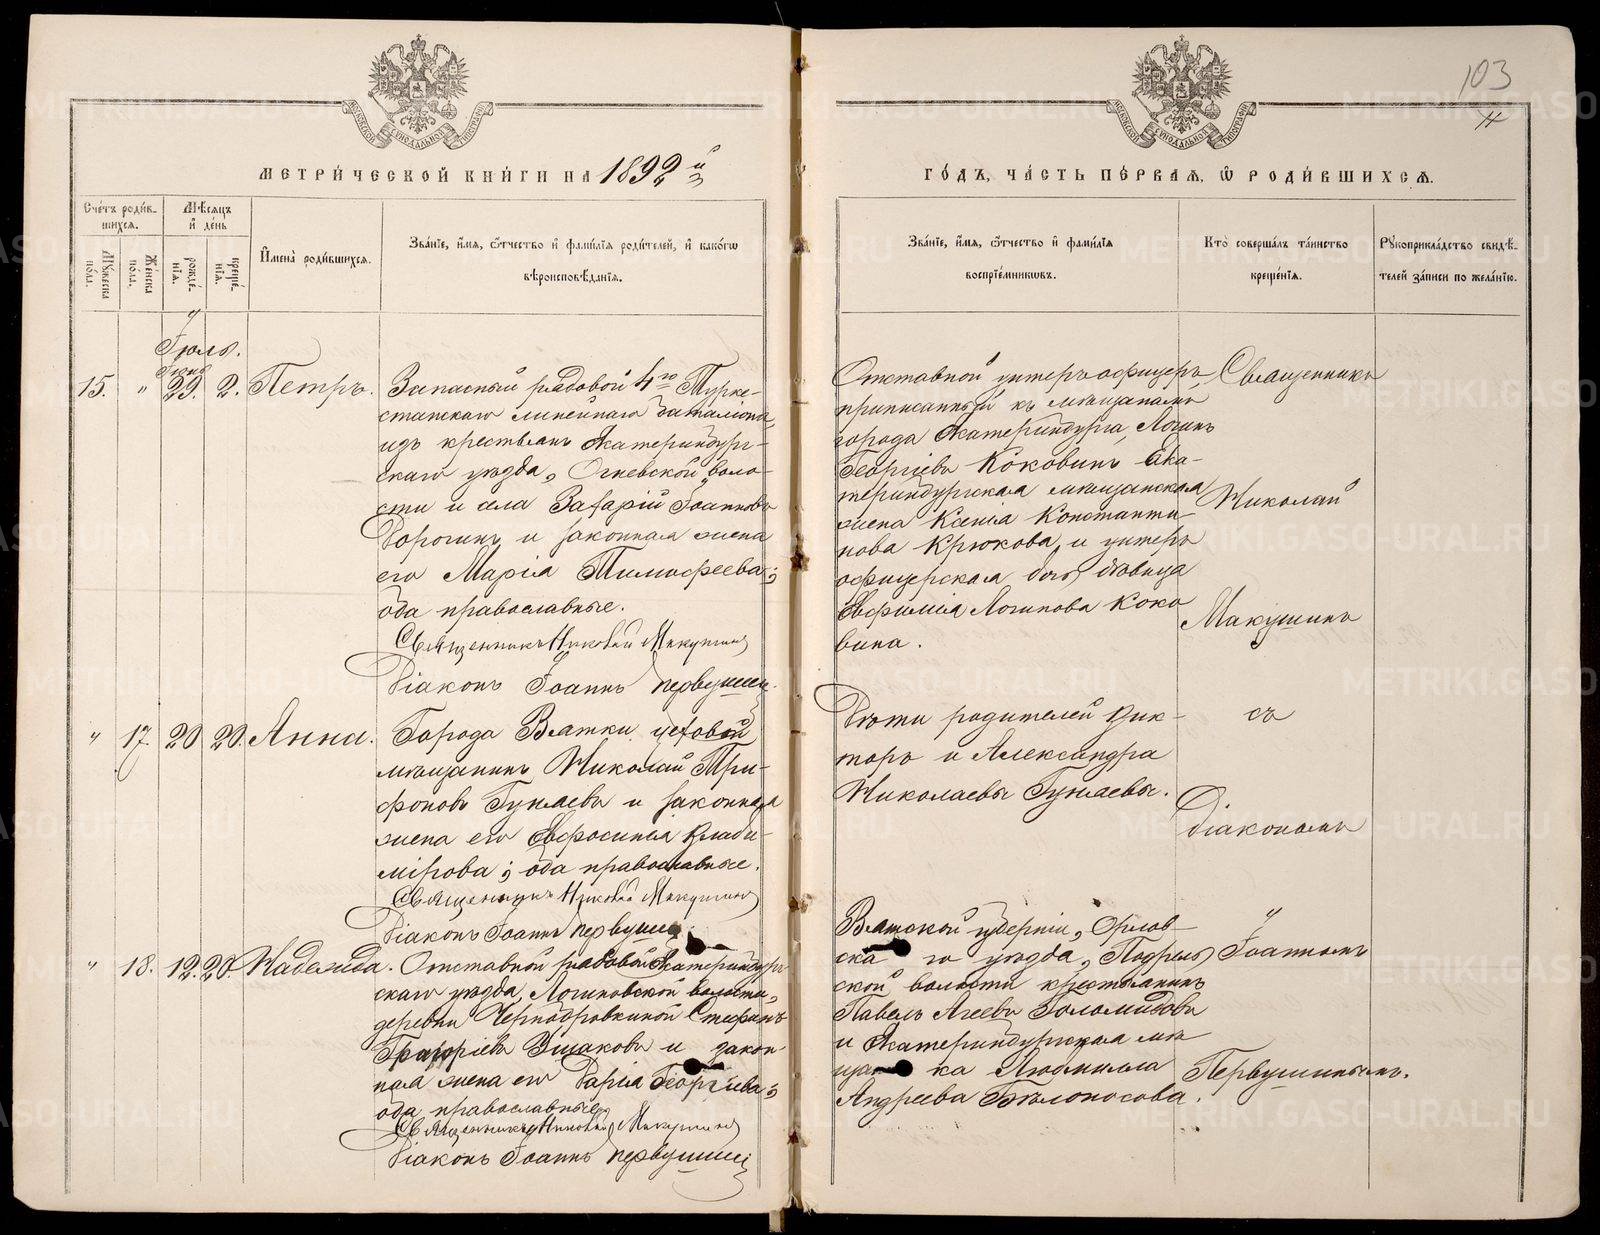 103
МОСКОВСКОЙ СѴНОДАЛЬНОЙ ТИПОГРАФІИ
МОСКОВСКОЙ СѴНОДАЛЬНОЙ ТИПОГРАФІИ
МЕТРИ́ЧЕСКОЙ КНИ́ГИ НА 1892 й
ГО́ДЪ, ЧА́СТЬ ПЕ́РВАЯ, Ѡ РОДИ́ВШИХСЯ.
Сче́тъ роди́в-
шихся.
Мѣ́сяцъ
и҆ де́нь
Му́жеска по́ла.
Же́нска по́ла.
рожде́-
нїя.
креще́-
нїя.
И҆мена̀ роди́вшихся.
Зва́нїе, и҆́мя, ѻ҆́тчество и҆ фами́лїя роди́телей, и҆ како́гѡ
вѣроисповѣ́данїя.
Зва́нїе, и҆́мя, ѻ҆́тчество и҆ фами́лїя
воспрїе́мникѡвъ.
Кто̀ соверша́лъ та́инство
креще́нїя.
Рꙋкоприкла́дство свидѣ́-
телей за́писи по жела́нїю.
Іюль.
Іюнь
15. " 29. 2. Петръ. Запасный рядовой 4го Турке-
станскаго линейнаго баталіона,
изъ крестьянъ Екатеринбург-
скаго уѣзда, Огневской воло-
сти и села Захарій Іоанновъ
Дорогинъ и законная жена
его Марія Тимофеева;
оба православные.
Священникъ Николай Макушинъ
Діаконъ Іоаннъ Первушин
Отставной унтеръ офицеръ,
приписанный къ мѣщанамъ
города Екатеринбурга, Логинъ
Георгіевъ Коковинъ Ека-
теринбургская мѣщанская
жена Ксенія Константи-
нова Крюкова, и унтеръ
офицерская дочь дѣвица
Евфимія Логинова Коко
вина.
Священникъ
Николай
Макушинъ
" 17. 20 20. Анна. Города Вятки цеховой
мѣщанинъ Николай Три-
фоновъ Гуляевъ и законная
жена его Евфросинія Влади-
мірова; оба православные.
Священникъ Николай Макушинъ
Діаконъ Іоаннъ Первушин
Дѣти родителей Вик-
торъ и Александра
Николаевы Гуляевы.
съ
Діакономъ
" 18. 12. 20. Надежда. Отставной рядовой Екатеринбург
скаго уѣзда, Логиновской волости,
деревни Чернобровкиной Стефанъ
Григоріевъ Ушаковъ и закон-
ная жена его Дарія Георгіева;
оба православные.
Священникъ Николай Макушинъ
Діаконъ Іоаннъ Первушин
Вятской губерніи, Орлов-
ска го уѣзда, Подрел
ской волости крестьянинъ
Павелъ Агеевъ Голомидовъ
и Екатеринбургская мѣ
щан ка Людмила
Андреева Бѣлоносова.
"
Іоанномъ
Первушинымъ.
METRIKI.GASO-URAL.RU